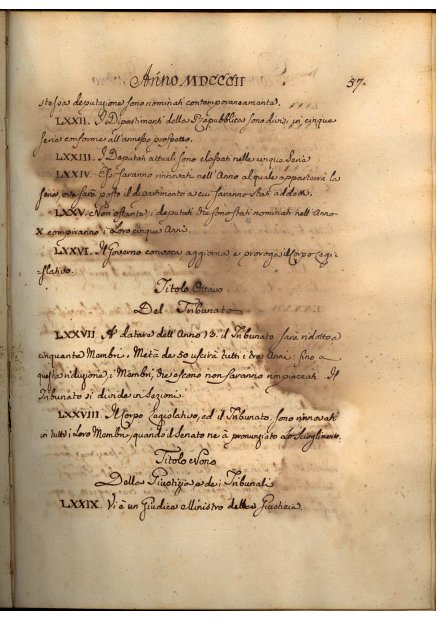 Anno MDCCCII
57.
stessa deputazione sono nominati contemporaneamente.
LXXII. I Dipartimenti della Repubblica sono divisi in cinque
serie conforme all'annesso prospetto.
LXXIII. I Deputati attuali sono classati nelle cinque Serie
LXXIV. Essi saranno rinnovati nell'Anno al quale apparterrà la
serie, ove sarà posto il dipartimento a cui saranno stati addetti.
LXXV. Non ostante i deputati che sono stati nominati nell'Anno
X. compiranno i loro cinque Anni.
LXXVI. Il Governo convoca aggiorna, e proroga il Corpo Legi-
slativo.
Titolo Ottavo
Del Tribunato
LXXVII A datare dell'Anno 13. il Tribunato sarà ridotto a
cinquanta Membri. Metà de 50 uscirà tutti i tre Anni: fino a
questa riduzione, i Membri, che escono non saranno rimpiazzati. Il
Tribunato si divide in Sezioni.
LXXVIII Il Corpo Legislativo, ed il Tribunato, sono rinnovati
in tutti i Loro Membri, quando il Senato ne à pronunziato Lo Scioglimento.
Titolo Nono
Della Giustizia, e dei Tribunali
LXXIX. Vi è un Giudice Ministro della Giustizia.